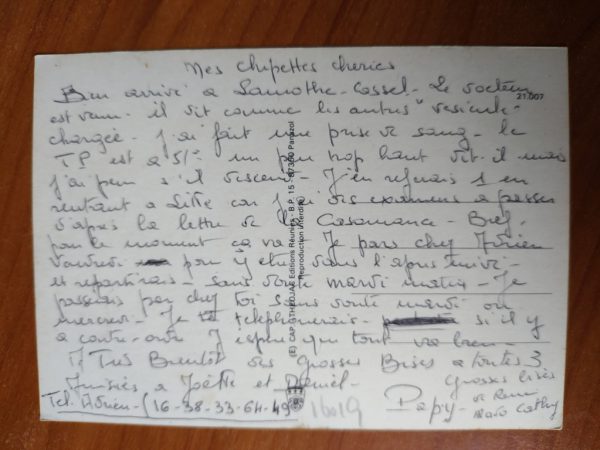 Mes Chipettes cheries
Bien arrivé a Lamothe-Cassel - Le docteur
est venu - il dit comme les autres "vesicule
chargée - J'ai fait une prise de sang - le
TP est a 51% un peu trop haut dit-il mais
j'ai peur s'il descend - J'en referais 1 en
rentrant a car j'ai des examens a passer
d'après la lettre de Casamance - Bref -
pour le moment ça va - Je pars chez Adrien
Vendredi pour y etre dans l'apres midi -
et repartirais - sans doute mardi matin - Je
passerais par chez toi sans doute mardi ou
mercredi - Je te telephonerais - si il y
a contre-ordre J'espere que tout va bien -
A Très Bientot des Grosses Bises a toutes 3
Amitiés a Joëlle et Daniel -
Grosses bises
de
Cathy
Papy
Tel. Adrien - (16-38-33-64-49)
16019
21.007
(E) CAP - THEOJAC Editions Réunies - B.P. 15 - 87350 Panazol
Reproduction interdite